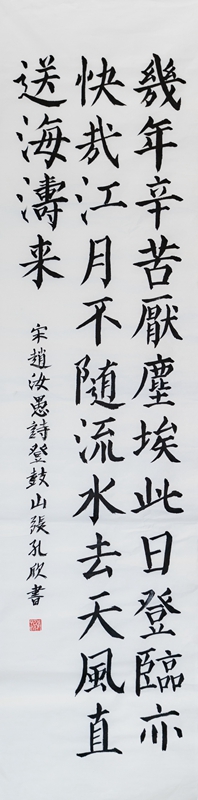 幾年辛苦厭塵埃此日登臨亦
快哉江月不隨流水去天風直
送海濤来
宋趙汝愚詩登鼓山張孔欣書